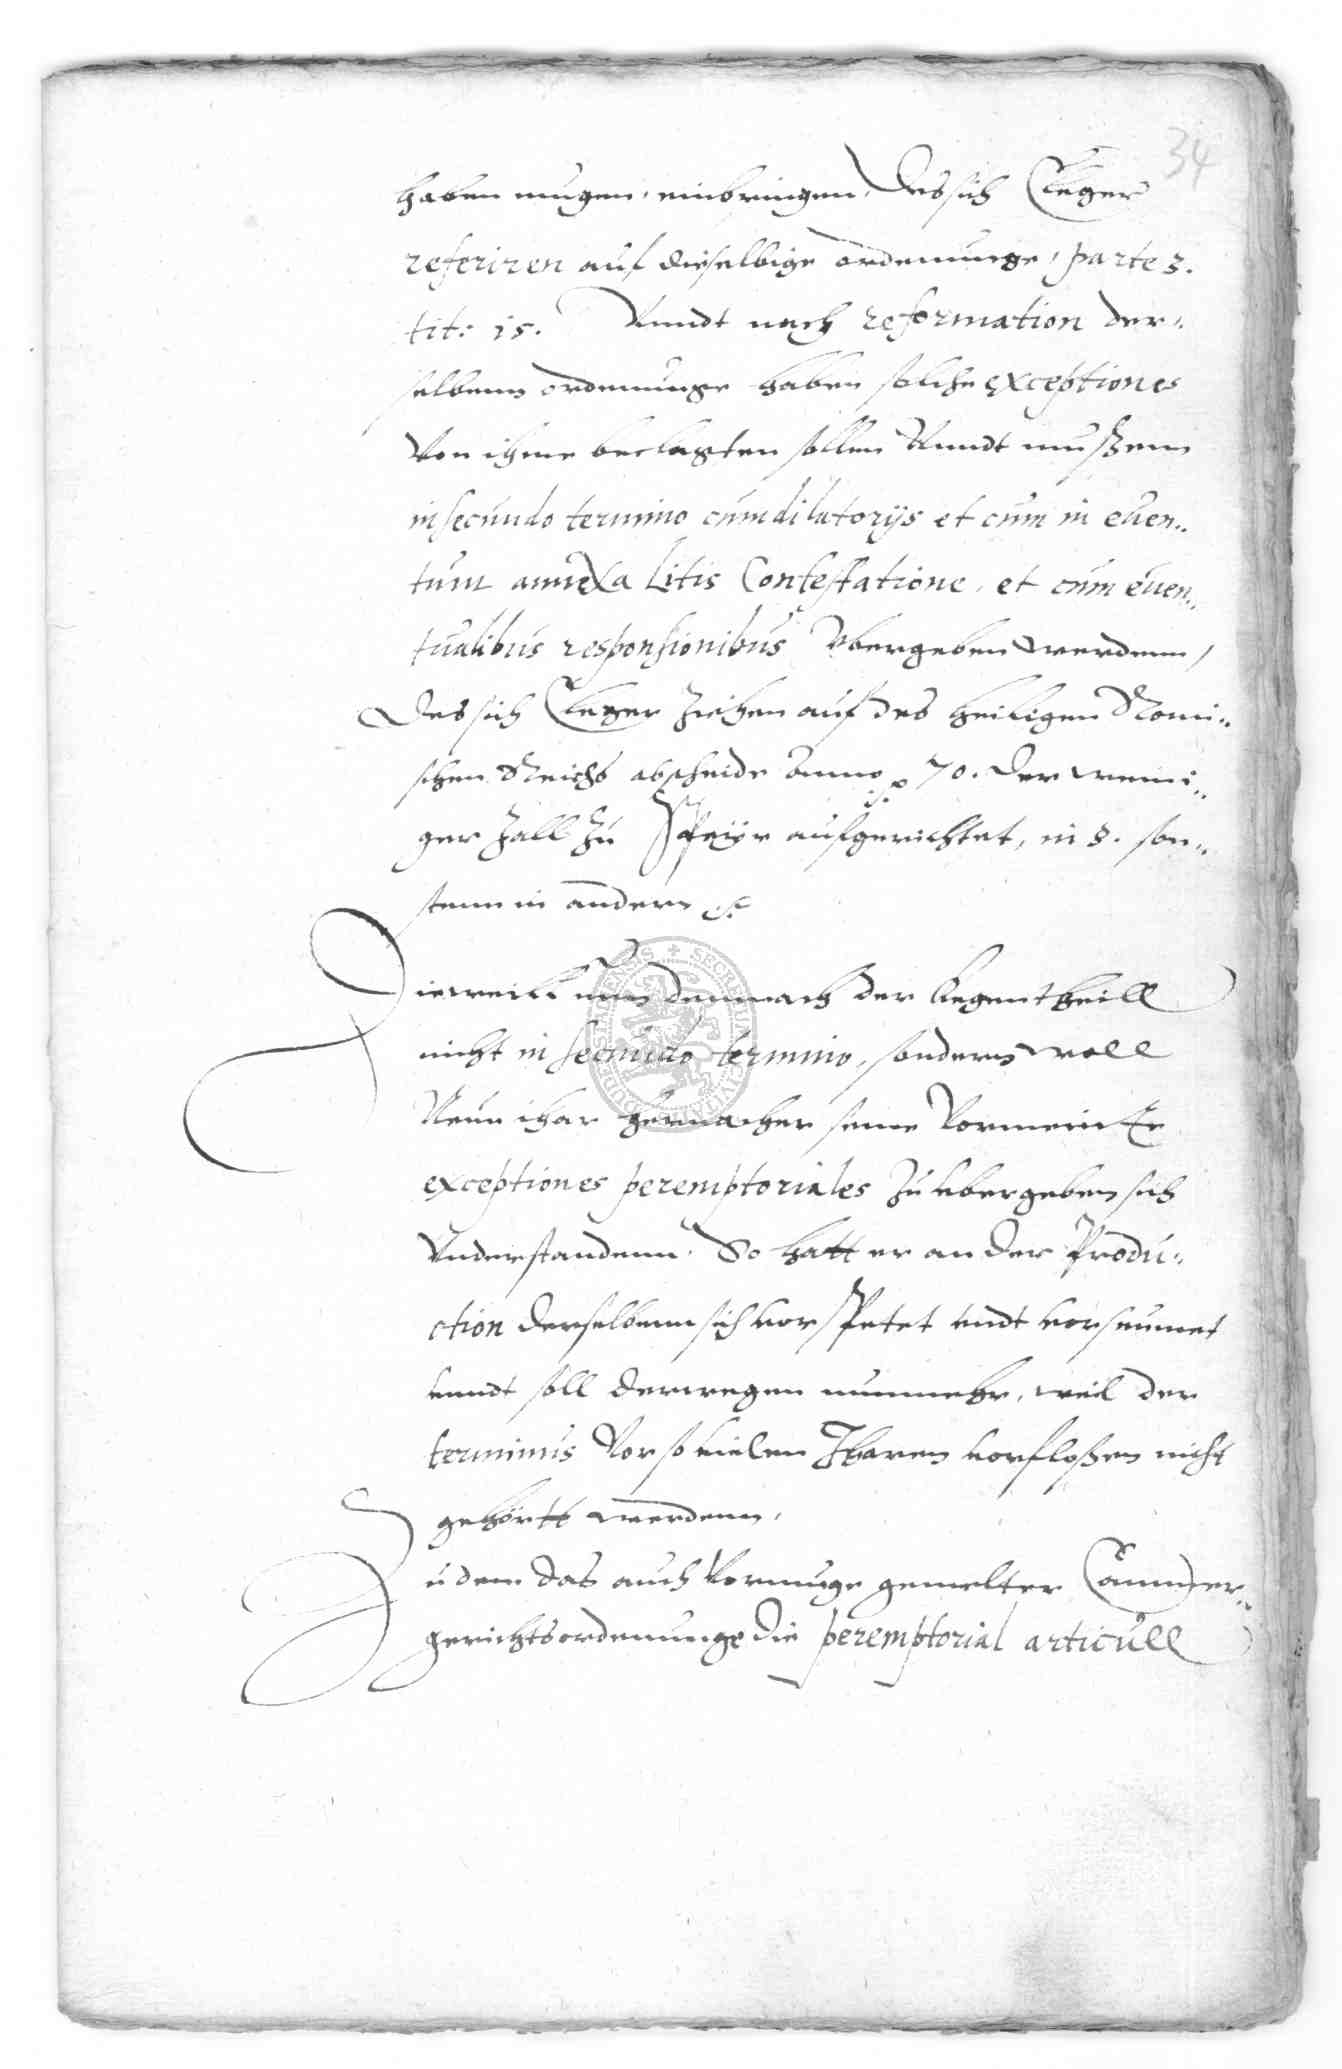 34
haben mugen, einbringen, Des sich Cleger
referiren auf dieselbige ordenunge, parte 3.
tit: 15. Vnndt nach reformation der„
selbenn ordenunge haben solche exceptiones
Von ihme beclagten sollen Vnndt mussenn
in secundo termino cum dilatorijs et cum in euen„
tum annexa Litis Contestatione, et cum euen„
tualibus responsionibus Vbergeben werdenn,
Des sich Cleger ziehen auf des heiligen Romi„
schen Reichs abscheide anno p 70. der weini„
ger Zall zu Speyr aufgerichtet, in §. son„
stenn in andern
Dieweill nun demnach der kegentheill
nicht in secundo termino, sondern woll
Neun ihar hernacher seine Vormeinte
exceptiones peremptoriales zu ubergeben sich
Vnderstandenn. So hatt er an der Produ„
ction derselbenn sich vorspetet undt vorseumet
unndt soll derwegen nunmehr, weil der
terminus Vor so vielen Iharen vorflossen nicht
gehörtt werdenn,
Zudem das auch Vermuge gemelter Cammer„
gerichtsordenunge die peremptorial articull
SECRETUM CIVITATIS